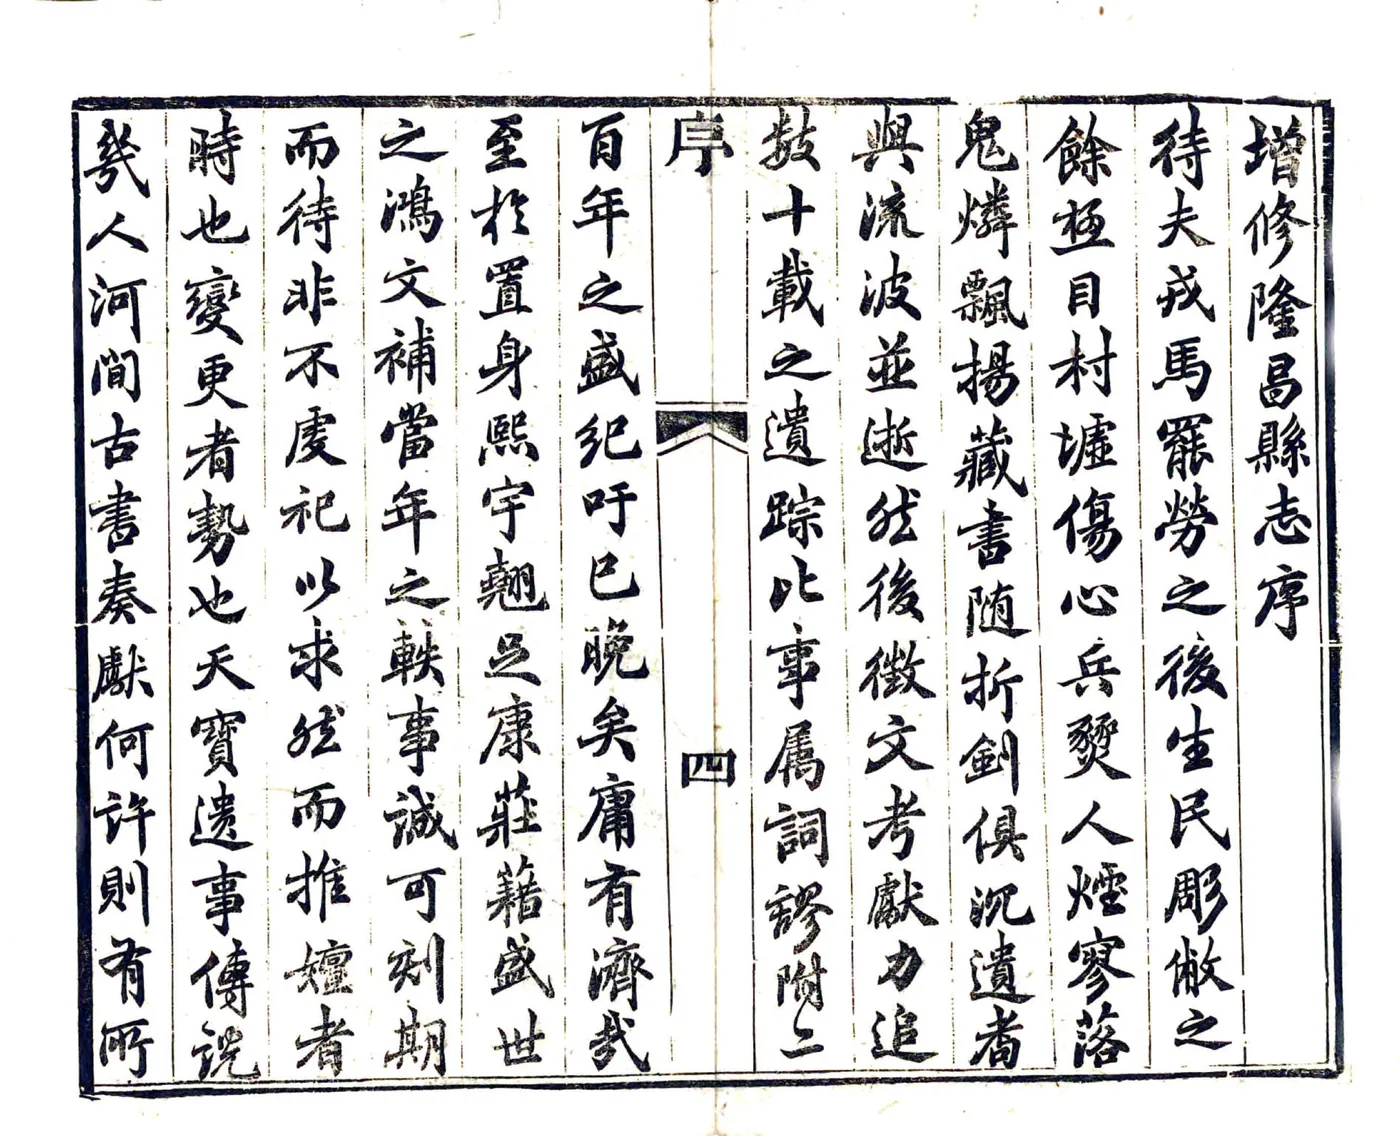 增修隆昌縣志序
待夫戎馬罷勞之後生民彫敝之
餘極目村墟傷心兵燹人煙寥落
鬼燐飄揚藏書随折劍俱沉遺耆
與流波並逝然後徵文考獻力追
数十載之遺踪比事属詞謬附二
序
四
百年之盛纪吁已晚矣庸有濟哉
至於置身熙宇翹足康莊藉盛世
之鴻文補當年之軼事誠可刻期
而待非不虔祀以求然而推嬗者
時也變更者勢也天寶遺事傳説
幾人河間古書奏獻何許則有所